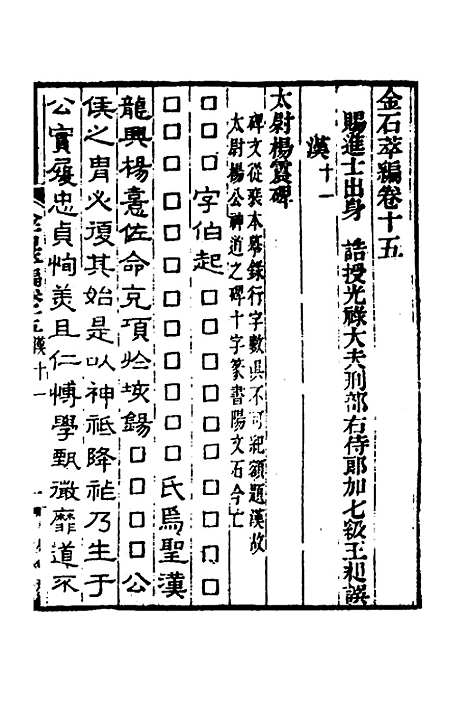 金石萃編卷十五
賜進士出身 誥授光祿大夫刑部右侍郎加七級王昶譔
漢十一
太尉楊震碑
碑文從裝本摹錄行字數俱不可紀額題漢故
太尉楊公神道之碑十字篆書陽文石今亡
□□□字伯起□□□□□□□□□□
□□□□□□□□□□□□氏焉聖漢
龍興楊憙佐命克項於垓鍚□□□□□公
侯之胄必復其始是以神祗降祉乃生于
公實履忠貞恂美且仁博學甄微靡道不
金石萃編卷十五 漢十一 一